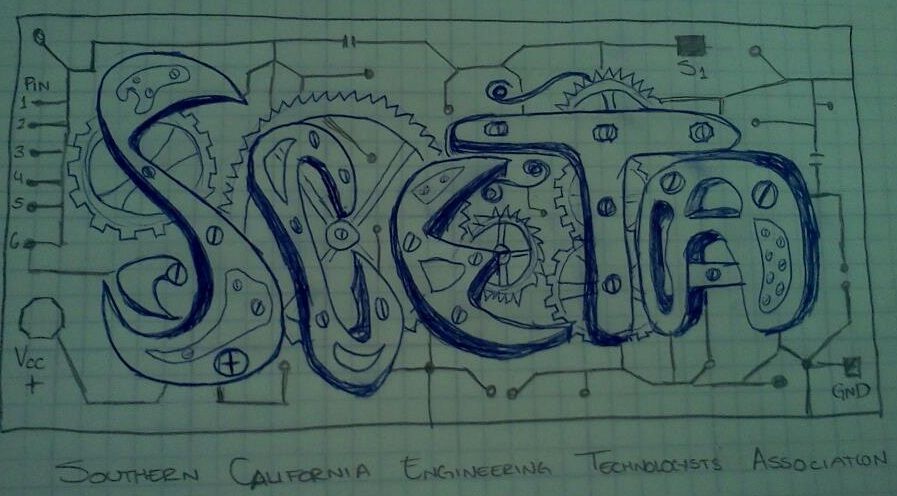 S1
PIN
1
2
3
4
5
6
SCETA
Vcc
+
GND
SOUTHERN CALIFORNIA ENGINEERING TECHNOLOGISTS ASSOCIATION